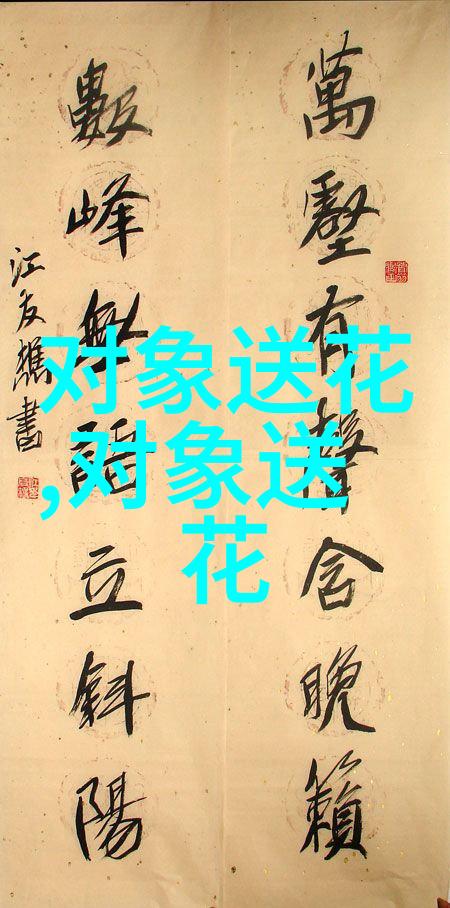 萬壑有聲含晚籟
數峰無語立斜陽
江友樵書
对象送花
,对象送
花